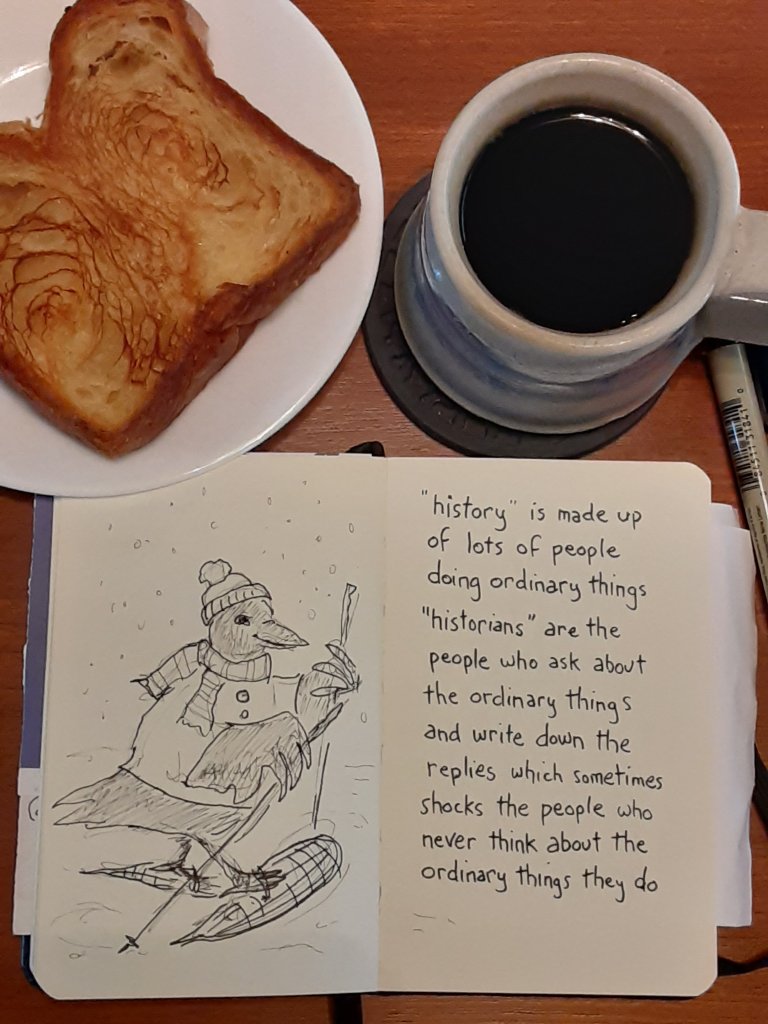 "history" is made up
of lots of people
doing ordinary things
"historians" are the
people who ask about
the ordinary things
and write down the
replies which sometimes
shocks the people who
never think about the
ordinary things they do